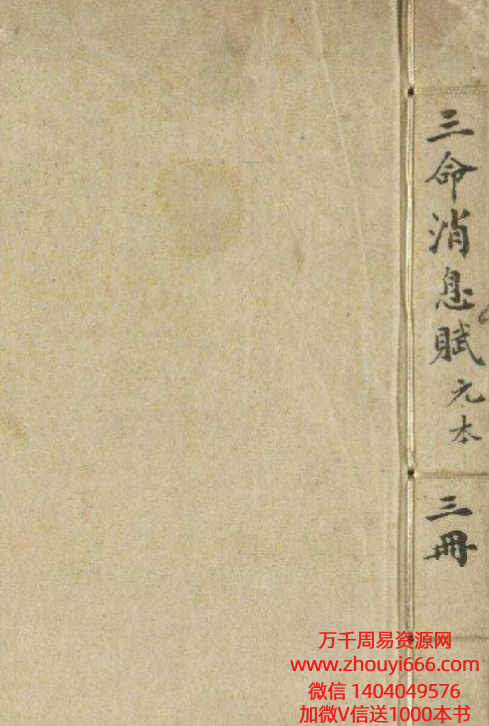 三命消息賦 元本
三冊
万千周易资源网
www.zhouyi666.com
微信 1404049576
加微V信送1000本书